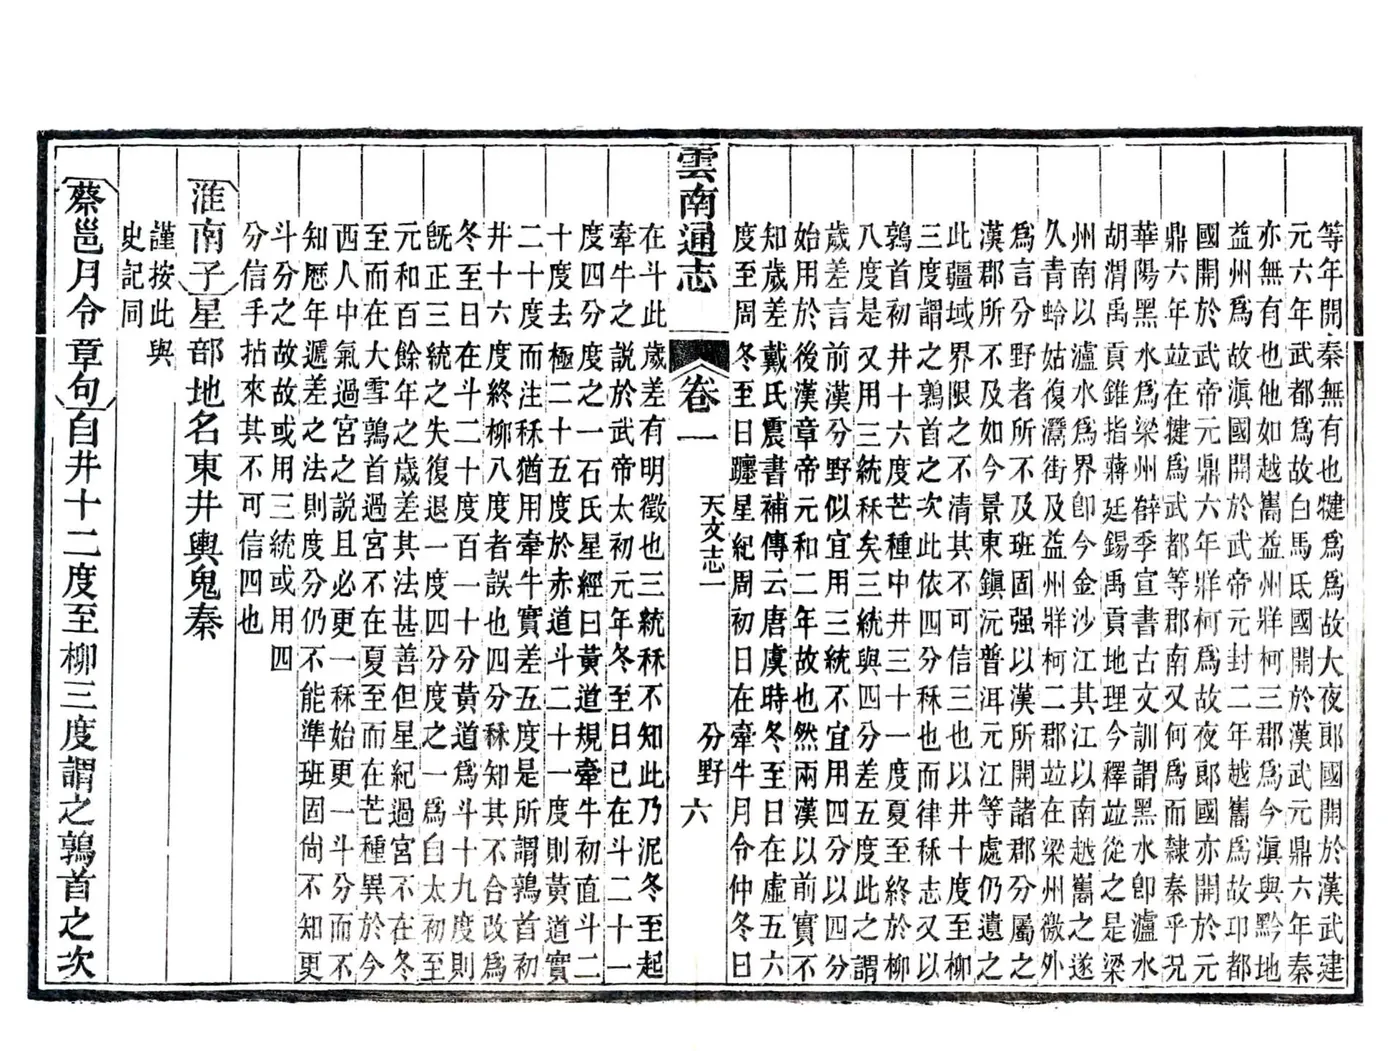 等年開秦無有也犍爲爲故大夜郎國開於漢武建
元六年武都爲故白馬氐國開於漢武元鼎六年秦
亦無有也他如越嶲益州牂柯三郡爲今滇與黔地
益州爲故滇國開於武帝元封二年越嶲爲故卭都
國開於武帝元鼎六年牂柯爲故夜郎國亦開於元
鼎六年竝在犍爲武都等郡南又何爲而隸秦乎況
華陽黑水爲梁州辥季宣書古文訓謂黑水卽瀘水
胡渭禹貢錐指蔣廷錫禹貢地理今釋竝從之是梁
州南以瀘水爲界卽今金沙江其江以南越嶲之遂
久青蛉姑復灊街及益州牂柯二郡竝在梁州徼外
爲言分野者所不及班固强以漢所開諸郡分屬之
漢郡所不及如今景東鎭沅普洱元江等處仍遺之
此疆域界限之不清其不可信三也以井十度至柳
三度謂之鶉首之次此依四分秝也而律秝志又以
鶉首初井十六度芒種中井三十一度夏至終於柳
八度是又用三統秝矣三統與四分差五度此之謂
歲差言前漢分野似宜用三統不宜用四分以四分
始用於後漢章帝元和二年故也然兩漢以前實不
知歲差戴氏震書補傳云唐虞時冬至日在虛五六
度至周冬至日躔星紀周初日在牽牛月令仲冬日
雲南通志 卷一 天文志一 分野 六
在斗此歲差有明徵也三統秝不知此乃泥冬至起
牽牛之說於武帝太初元年冬至日已在斗二十一
度四分度之一石氏星經曰黃道規牽牛初直斗二
十度去極二十五度於赤道斗二十一度則黃道實
二十度而注秝猶用牽牛實差五度是所謂鶉首初
井十六度終柳八度者誤也四分秝知其不合改爲
冬至日在斗二十度百一十分黃道爲斗十九度則
旣正三統之失復退一度四分度之一爲自太初至
元和百餘年之歲差其法甚善但星紀過宮不在冬
至而在大雪鶉首過宮不在夏至而在芒種異於今
西人中氣過宮之說且必更一秝始更一斗分而不
知歷年遞差之法則度分仍不能準班固尙不知更
斗分之故故或用三統或用四
分信手拈來其不可信四也
淮南子星部地名東井輿鬼秦
謹按此與
史記同
蔡邕月令章句自井十二度至柳三度謂之鶉首之次